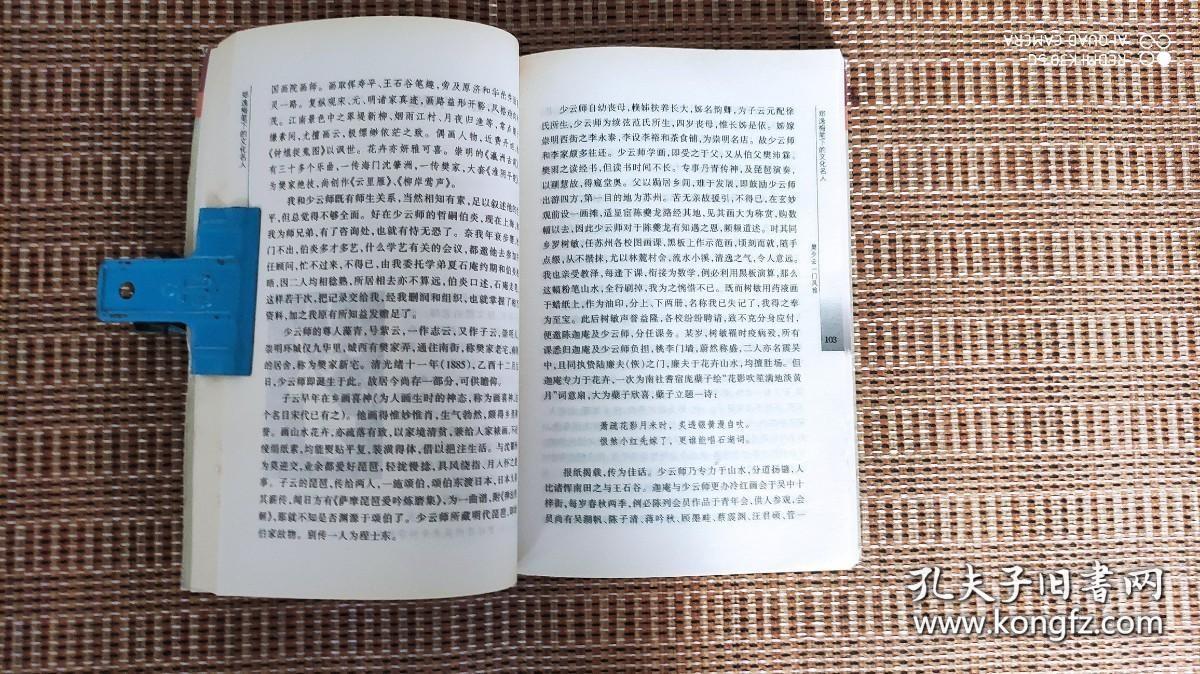 郑逸梅笔下的文化名人
国画院画师。画取恽寿平、王石谷笔趣，旁及原济和华
灵一路。复纵观宋、元、明诸家真迹，画路益形开豁，风格
茂。江南景色中之翠堤新柳、烟雨江村、月夜归渔等，常
慊素问，尤擅画云，极缥缈依茫之致。偶画人物，近费丹
《钟馗捉鬼图》以讽世。花卉亦妍雅可喜。崇明的《瀛洲古
有三十多个乐曲，一传海门沈肇洲，一传樊家，大套《淮阴平
为樊家绝技，尚创作《云里雁》、《柳岸莺声》。
我和少云师既有师生关系，当然相知有素，足以叙述他的
平，但总觉得不够全面。好在少云师的哲嗣伯炎，现在上海，
我为师兄弟，有了咨询处，也就有恃无恐了。奈我年衰步蹇，
门不出，伯炎多才多艺，什么学艺有关的会议，都邀他去参加
任顾问，忙不过来，不得已，由我委托学弟夏石庵约期和伯炎
晤，因二人均相稔熟，所居相去亦不算远，伯炎口述，石庵走
这样若干次，把记录交给我，经我删润和组织，也就掌握了
资料，加之我原有所知益发赡足了。
少云师的尊人藻青，号紫云，一作志云，又作子云，崇明人
崇明环城仅九华里，城西有樊家弄，通往南街，称樊家老宅，
的居舍，称为樊家新宅。清光绪十一年(1885)，乙酉十二月
日，少云师即诞生于此。故居今尚存一部分，可供瞻仰。
子云早年在乡画喜神(为人画生时的神态，称为画喜神，
个名目宋代已有之)。他画得惟妙惟肖，生气勃然，颇得乡里
誉。画山水花卉，亦疏落有致，以家境清贫，兼给人家裱画，
绫绢纸素，均能熨贴平复，装潢得体，借以挹注生活。与沈肇
为莫逆交，业余都爱好琵琶，轻拢慢捻，具风绕指、月入怀之
事。子云的琵琶，传给两人，一施颂伯，颂伯东渡日本，日本人
其薪传，闻日方有《萨摩琵琶爱吟炼磨集》，为一曲谱，附《弹法
解》，那就不知是否渊源于颂伯了。少云师所藏明代琵琶，
伯家故物。别传一人为程士东。
少云师自幼丧母，赖姊扶养长大，姊名韵卿，为子云元配徐
氏所生，少云师为续弦范氏所生，四岁丧母，惟长姊是依。姊嫁
崇明西街之李永泰，李设李裕和茶食铺，为崇明名店。故少云师
和李家颇多往还。少云师学画，即受之于父，又从伯父樊沛霖、
樊雨之读经书，但读书时间不长。专事丹青传神，及琵琶演奏，
以颖慧故，得窥堂奥。父以跼居乡间，难于发展，即鼓励少云师
出游四方，第一目的地为苏州。苦无亲故援引，不得已，在玄妙
观前设一画摊，适显宦陈夔龙路经其地，见其画大为称赏，购数
幅以去，因此少云师对于陈夔龙有知遇之恩，频频道述。时其同
乡罗树敏，任苏州各校图画课，黑板上作示范画，顷刻而就，随手
点缀，从不拼抹，尤以林麓村舍，流水小溪，清逸之气，令人意远。
我也亲受教泽，每逢下课，衔接为数学，例必利用黑板演算，那么
这幅粉笔山水，全行刷掉，我为之惋惜不已。既而树敏用药液画
于蜡纸上，作为油印，分上、下两册，名称我已失记了，我得之奉
为至宝。此后树敏声誉益隆，各校纷纷聘请，致不克分身应付，
便邀陈迦庵及少云师，分任课务。某岁，树敏罹时疫病殁，所有
课悉归迦庵及少云师负担，桃李门墙，蔚然称盛，二人亦名震吴
中，且同执贽陆廉夫(恢)之门，廉夫于花卉山水，均擅胜场。但
迦庵专力于花卉，一次为南社耆宿庞蘖子绘“花影吹笙满地淡黄
月”词意扇，大为蘖子欣喜，蘖子立题一诗：
萧疏花影月来时，炙透银簧漫自吹。
恨煞小红先嫁了，更谁能唱石湖词。
报纸揭载，传为佳话。少云师乃专力于山水，分道扬镳，人
比诸恽南田之与王石谷。迦庵与少云师更办冷红画会于吴中十
梓街，每岁春秋两季，例必陈列会员作品于青年会，供人参观，会
员尚有吴澥帆、陈子清、蒋吟秋、顾墨畦、蔡震渊、汪君硕、管一
郑逸梅笔下的文化名人
樊少云一门风雅
103
REDMI K30 5G
AI QUAD CAMERA
孔夫子旧書网
www.kongfz.com